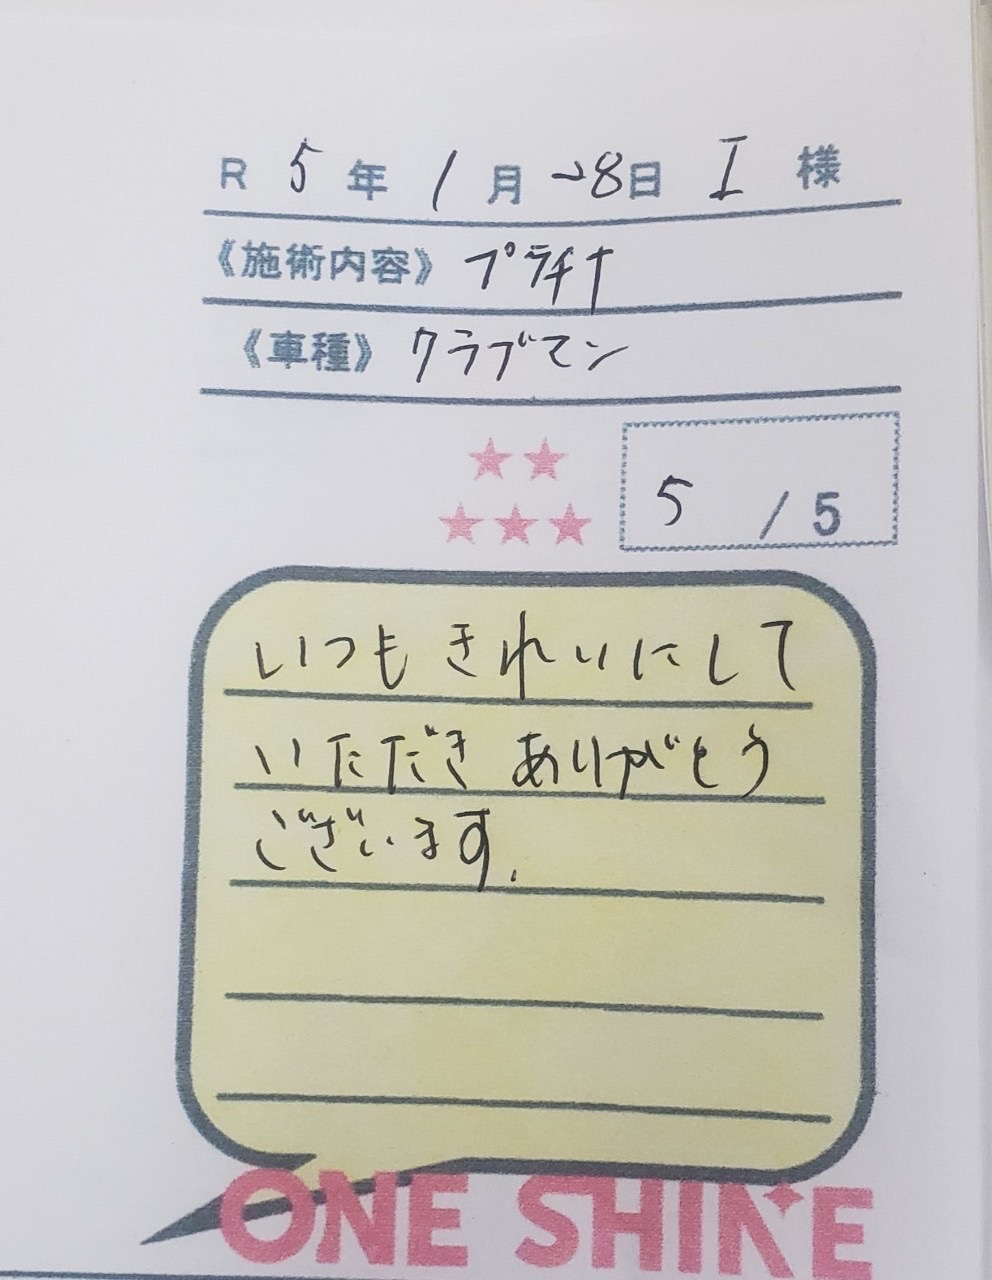 R 5年 1月 28日 I 様
《施術内容》プラチナ
《車種》クラブマン
5 / 5
いつもきれいにして
いただきありがとう
ございます.
ONE SHINE